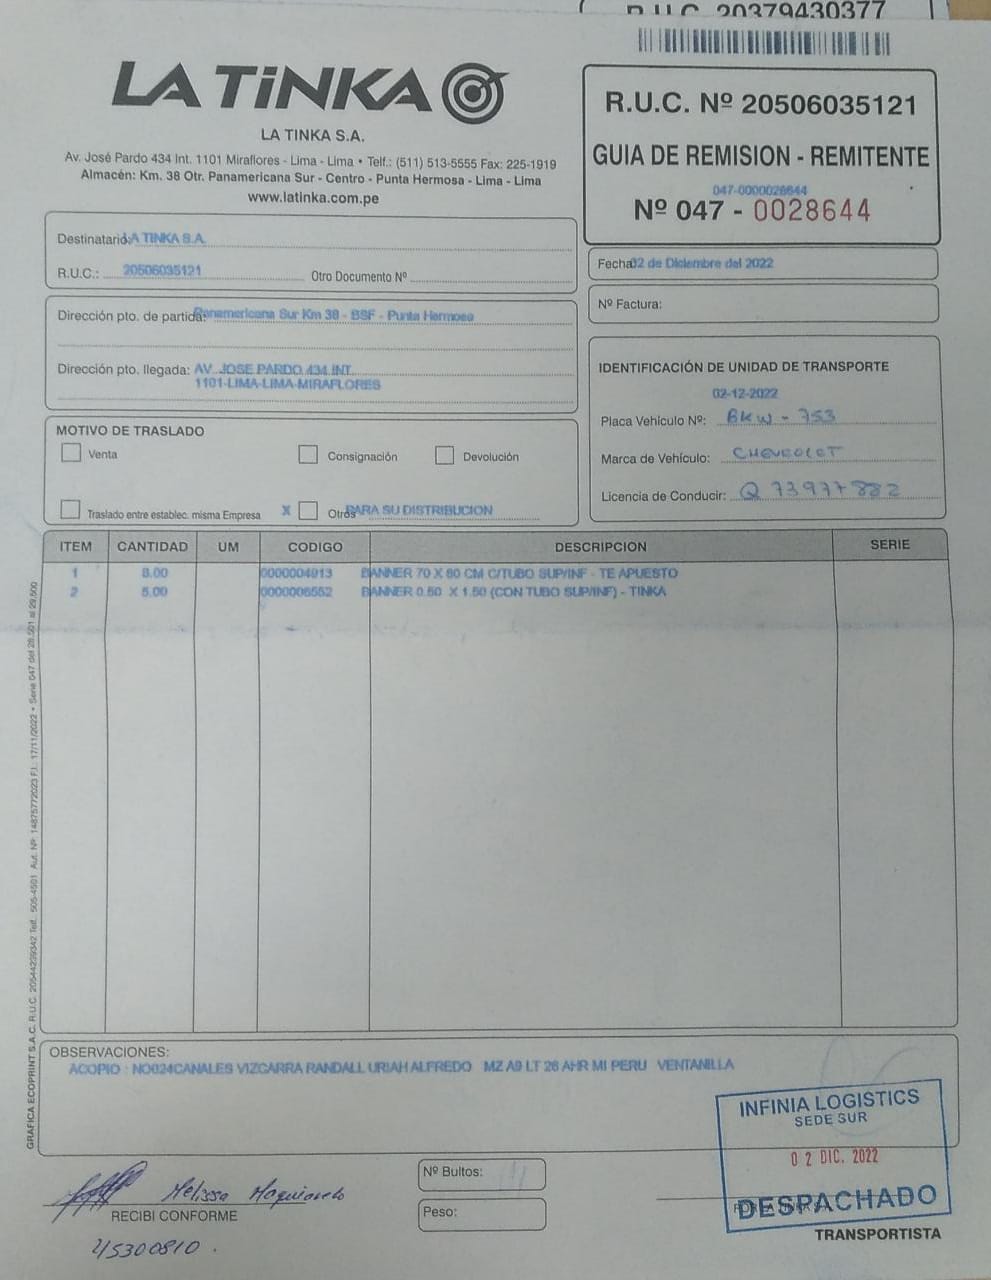 R.U.C. 20379430377
LA TiNKA
LA TINKA S.A.
Av. José Pardo 434 Int. 1101 Miraflores - Lima - Lima • Telf.: (511) 513-5555 Fax: 225-1919
Almacén: Km. 38 Otr. Panamericana Sur - Centro - Punta Hermosa - Lima - Lima
www.latinka.com.pe
R.U.C. Nº 20506035121
GUIA DE REMISION - REMITENTE
047-0000028644
Nº 047 - 0028644
Destinatario: LA TINKA S.A.
R.U.C.: 20506035121 Otro Documento Nº
Fecha: 02 de Diciembre del 2022
Nº Factura:
Dirección pto. de partida: Panamericana Sur Km 38 - BSF - Punta Hermosa
Dirección pto. llegada: AV. JOSE PARDO 434 INT.
1101-LIMA-LIMA-MIRAFLORES
IDENTIFICACIÓN DE UNIDAD DE TRANSPORTE
02-12-2022
Placa Vehículo Nº: BKW - 753
Marca de Vehículo: CHEVROLET
Licencia de Conducir: Q 73977882
MOTIVO DE TRASLADO
Venta Consignación Devolución
Traslado entre establec. misma Empresa X Otros PARA SU DISTRIBUCION
ITEM CANTIDAD UM CODIGO DESCRIPCION SERIE
1 8.00 0000004913 BANNER 70 X 80 CM C/TUBO SUP/INF - TE APUESTO
2 5.00 0000006552 BANNER 0.50 X 1.50 (CON TUBO SUP/INF) - TINKA
GRAFICA ECOPRINT S.A.C. R.U.C. 20544239342 Telf. 505-4501 Aut. Nº: 14875772023 F.I.: 17/11/2022 • Serie 047 del 28,501 al 29,500
OBSERVACIONES:
ACOPIO : NO024CANALES VIZCARRA RANDALL URIAH ALFREDO MZ A9 LT 26 AHR MI PERU VENTANILLA
INFINIA LOGISTICS
SEDE SUR
02 DIC. 2022
DESPACHADO
Nº Bultos:
Peso:
Melissa
RECIBI CONFORME
45300810.
TRANSPORTISTA